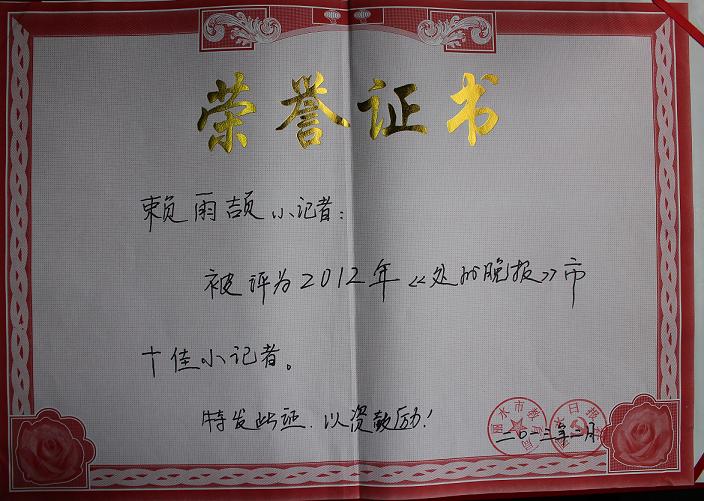 荣誉证书
赖雨颉小记者：
被评为2012年《处州晚报》市
十佳小记者。
特发此证，以资鼓励！
丽水市教育局
日报
二〇一三年二月